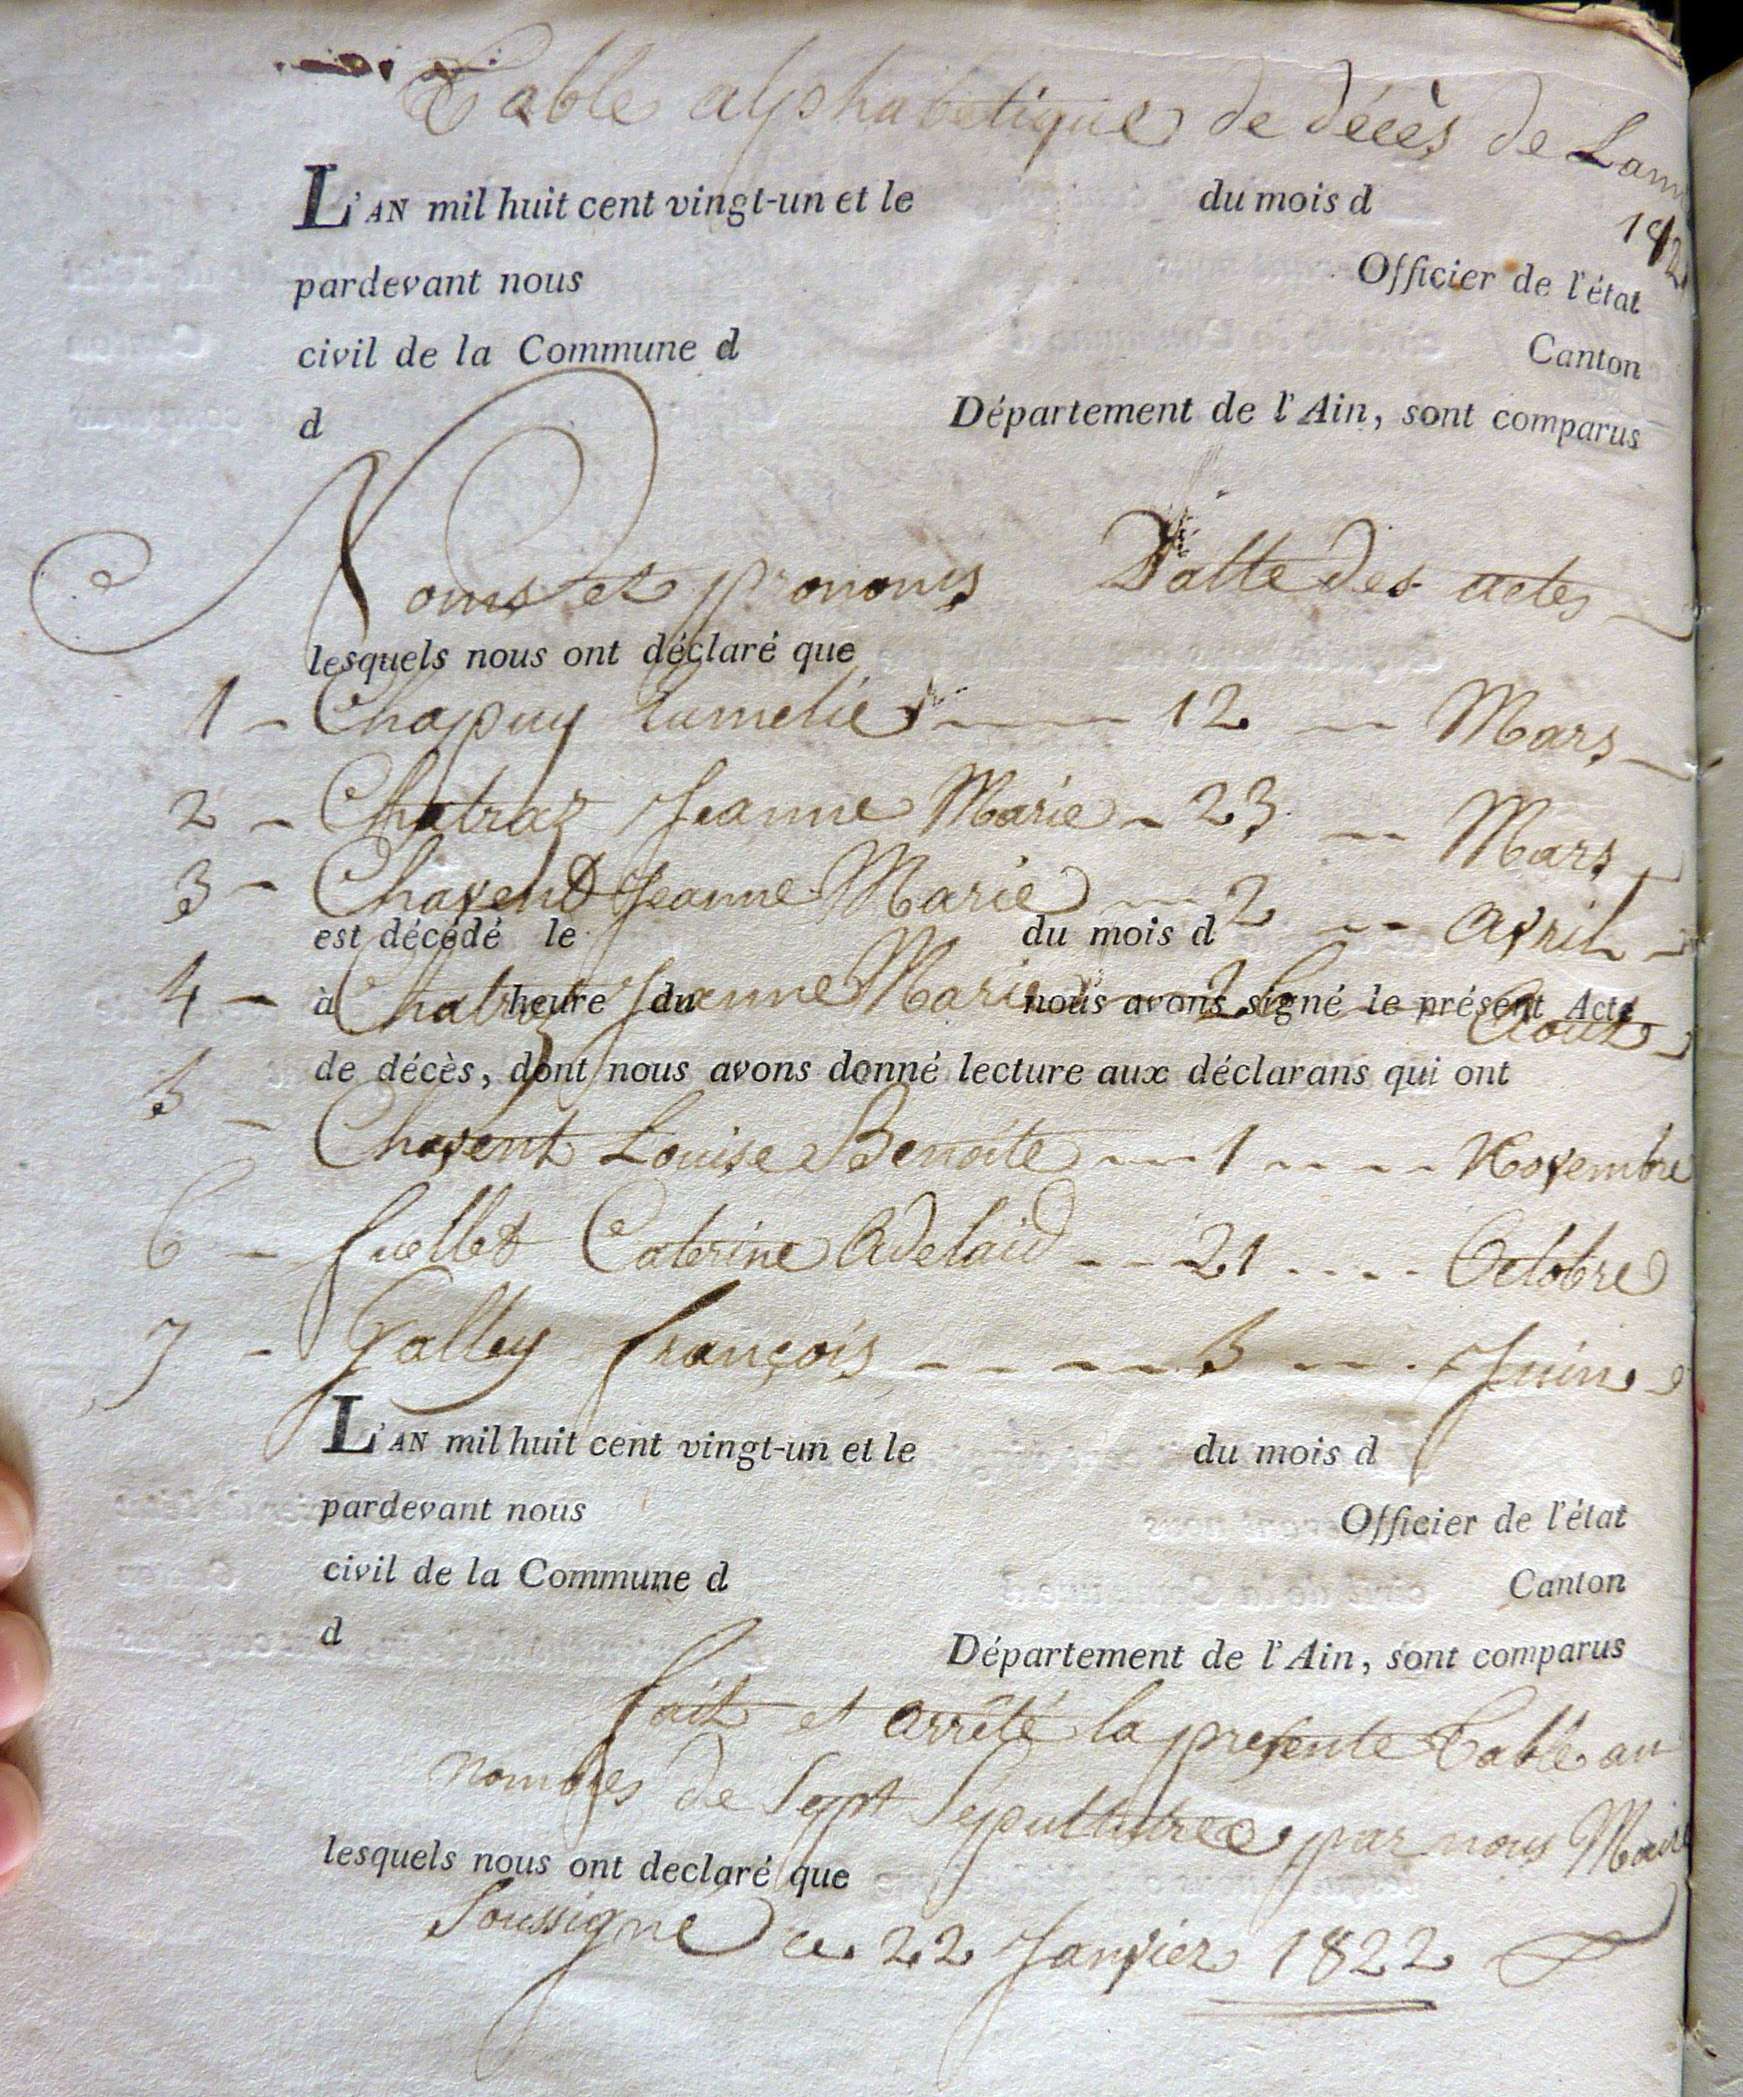 Table alphabetique de décès de Lann
182
L'AN mil huit cent vingt-un et le du mois d
pardevant nous Officier de l'état
civil de la Commune d Canton
d Département de l'Ain, sont comparus
Noms et pronoms Datte des actes
lesquels nous ont déclaré que
1 - Chapuy 12 Mars
2 - Chatraz Jeanne Marie - 23 Mars
3 - Chavent Jeanne Marie 2 Avril
est décédé le du mois d
4 - Chatraz Jeanne Marie Aout
à heure du nous avons signé le présent Acte
de décès, dont nous avons donné lecture aux déclarans qui ont
5 - Chavent Louise Benoite 1 Novembre
6 - fuellet Caterine Adelaid 21 Octobre
7 - Galley françois 5 Juin
L'AN mil huit cent vingt-un et le du mois d
pardevant nous Officier de l'état
civil de la Commune d Canton
d Département de l'Ain, sont comparus
fait et arrêté la presente Table au
nombres de Sept Sepultures par nous Maire
lesquels nous ont declaré que
Soussigné ce 22 Janvier 1822